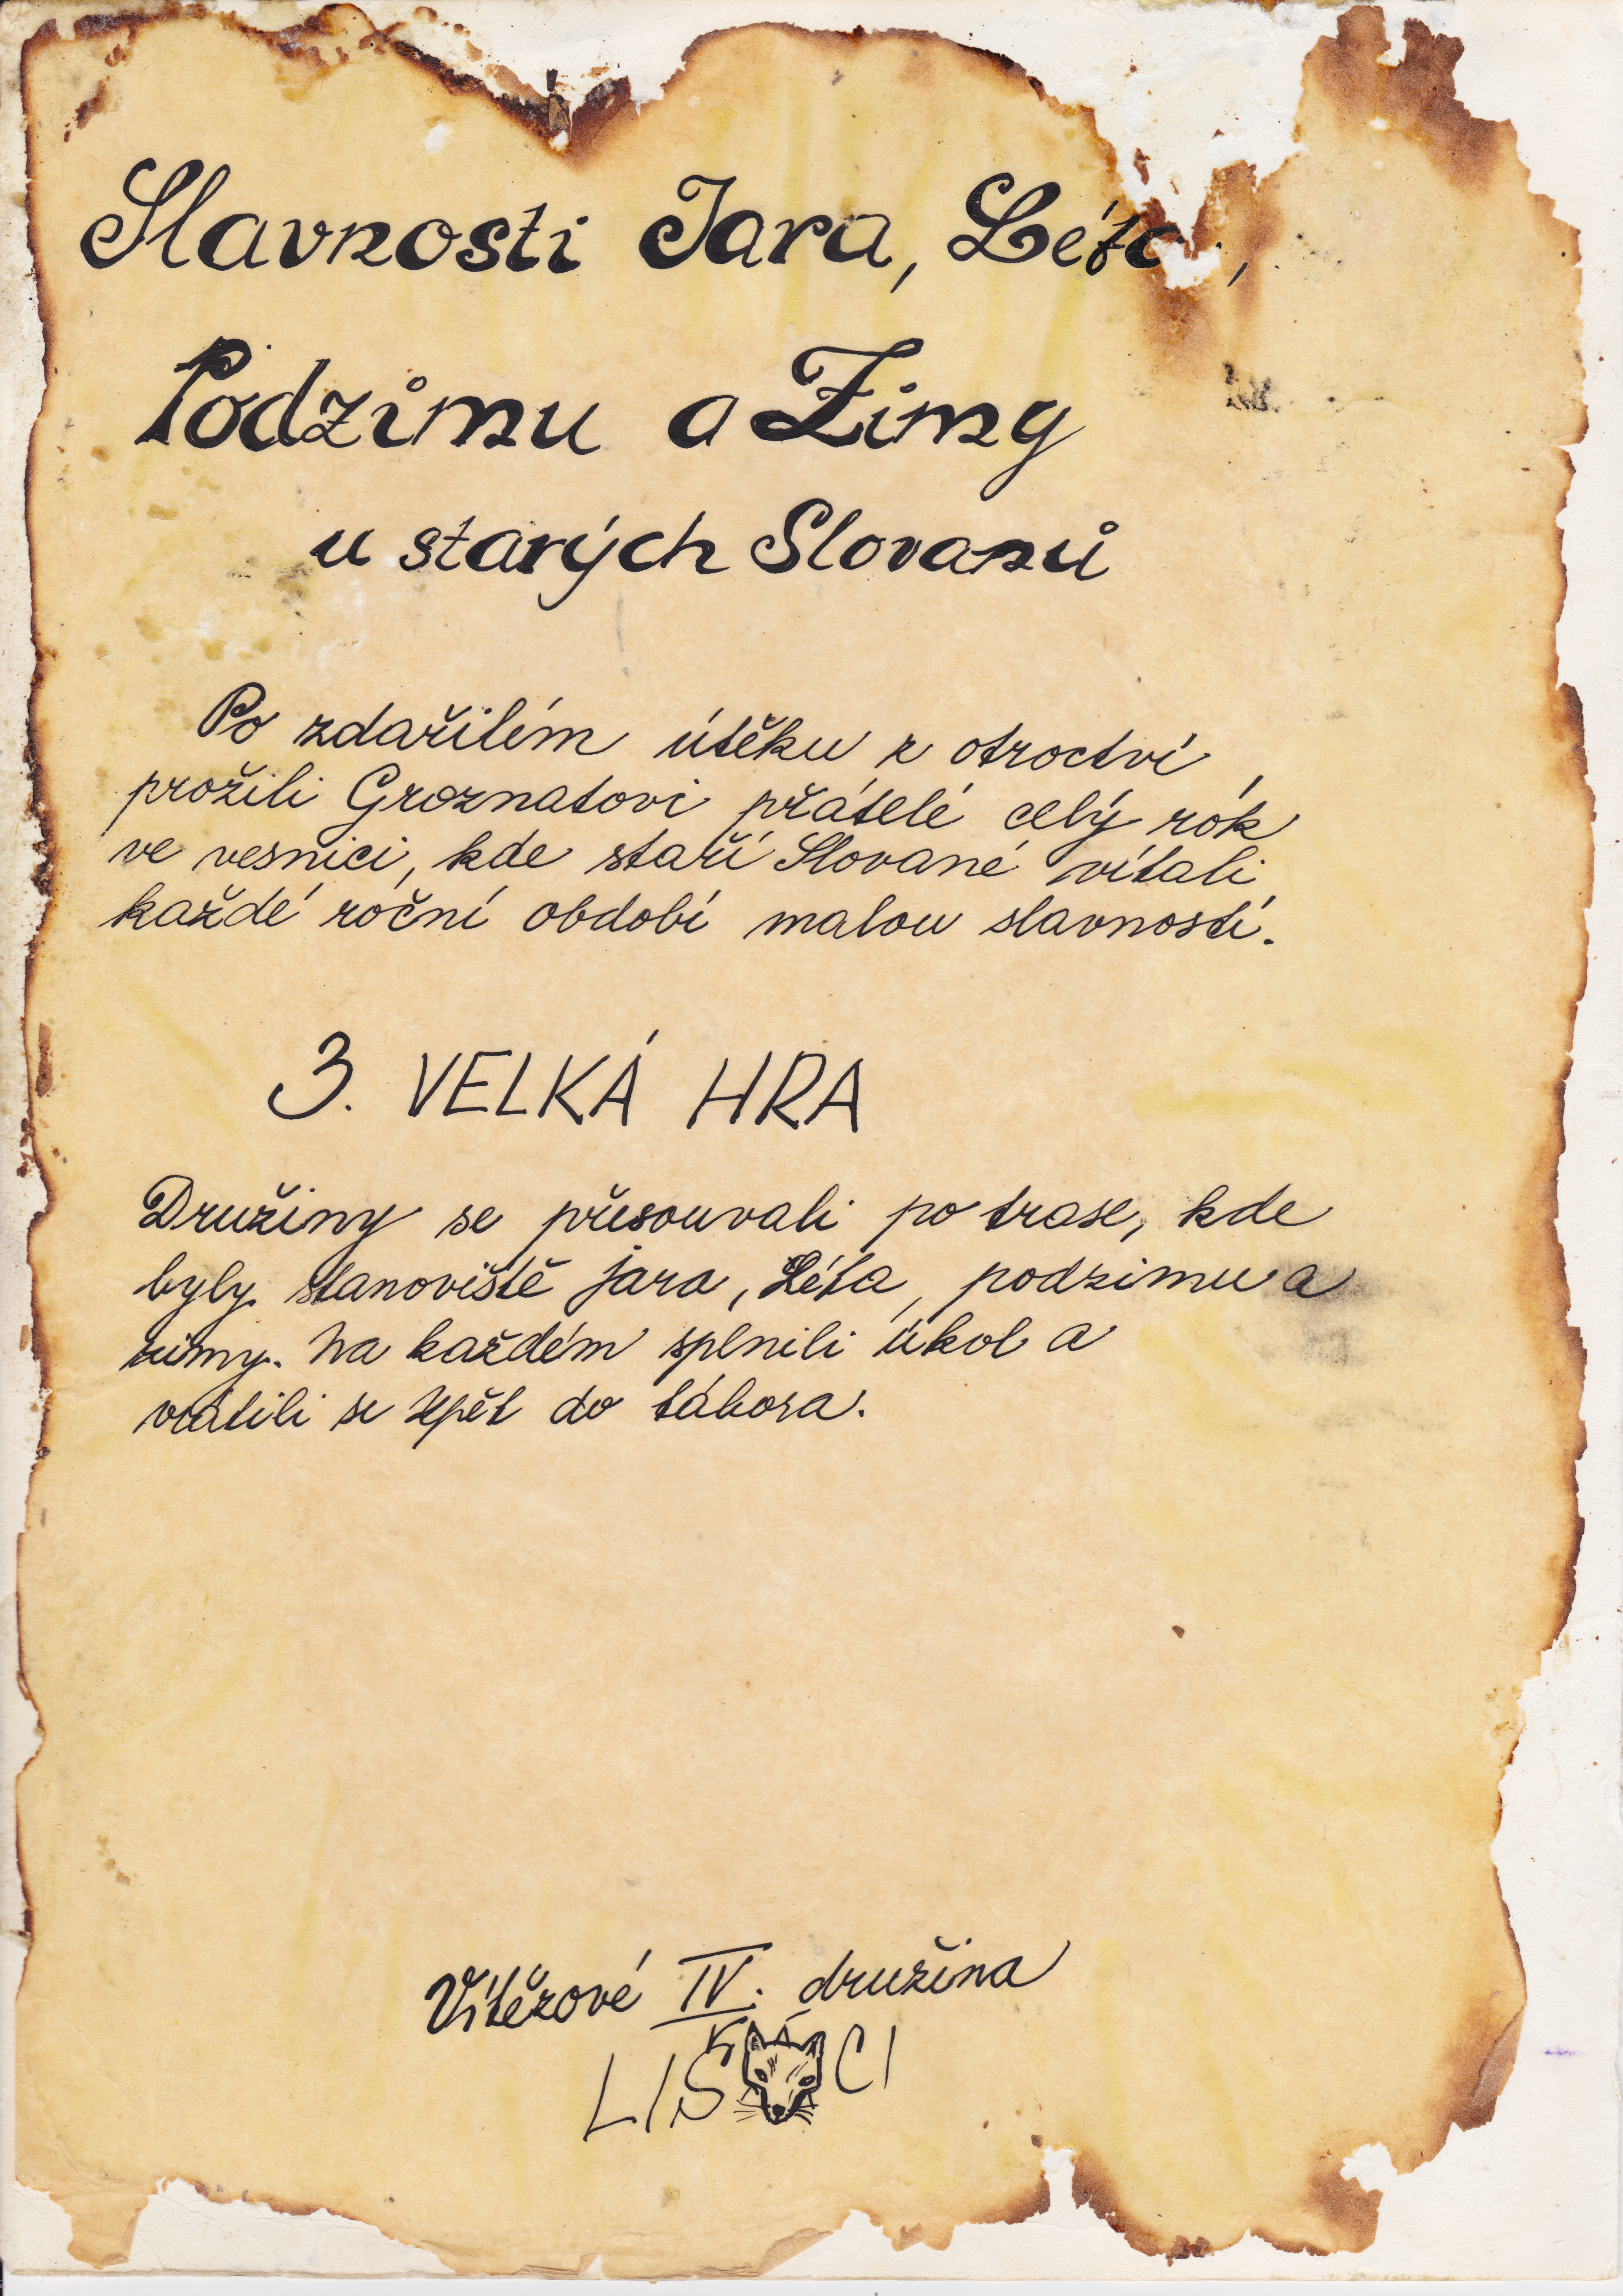 Slavnosti Jara, Léta,
Podzimu a Zimy
u starých Slovanů
Po zdařilém útěku z otroctví,
prožili Groznatovi přátelé celý rok
ve vesnici, kde staří Slované vítali
každé roční období malou slavností.
3. VELKÁ HRA
Družiny se přesouvali po trase, kde
byly stanoviště jara, Léta, podzimu a
zimy. Na každém splnili úkol a
vrátili se zpět do tábora.
Vítězové IV. družina
LIŠÁCI